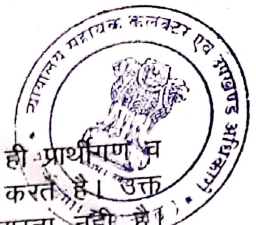 न्यायालय सहायक कलक्टर एवं उपखण्ड अधिकारी
ही प्रार्थीगण व
करते है। उक्त
नही है।